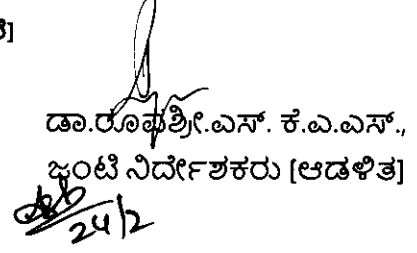 ಡಾ.ರೂಪಶ್ರೀ.ಎಸ್. ಕೆ.ಎ.ಎಸ್.,
ಜಂಟಿ ನಿರ್ದೇಶಕರು [ಆಡಳಿತ]
24/2